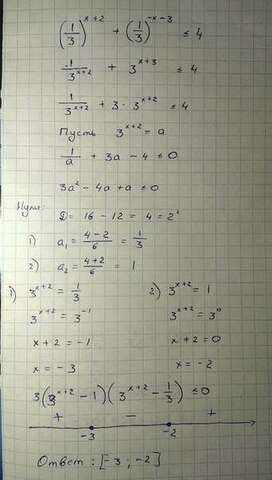 (1/3)^(x+2) + (1/3)^(-x-3) ≤ 4
1/3^(x+2) + 3^(x+3) ≤ 4
1/3^(x+2) + 3·3^(x+2) ≤ 4
Пусть 3^(x+2) = a
1/a + 3a - 4 ≤ 0
3a² - 4a + a ≤ 0
Нули:
D = 16 - 12 = 4 = 2²
1) a₁ = (4-2)/6 = 1/3
2) a₂ = (4+2)/6 = 1
1) 3^(x+2) = 1/3 2) 3^(x+2) = 1
3^(x+2) = 3^(-1) 3^(x+2) = 3^0
x + 2 = -1 x + 2 = 0
x = -3 x = -2
3(3^(x+2) - 1)(3^(x+2) - 1/3) ≤ 0
+ - +
-3 -2
Ответ: [-3; -2]